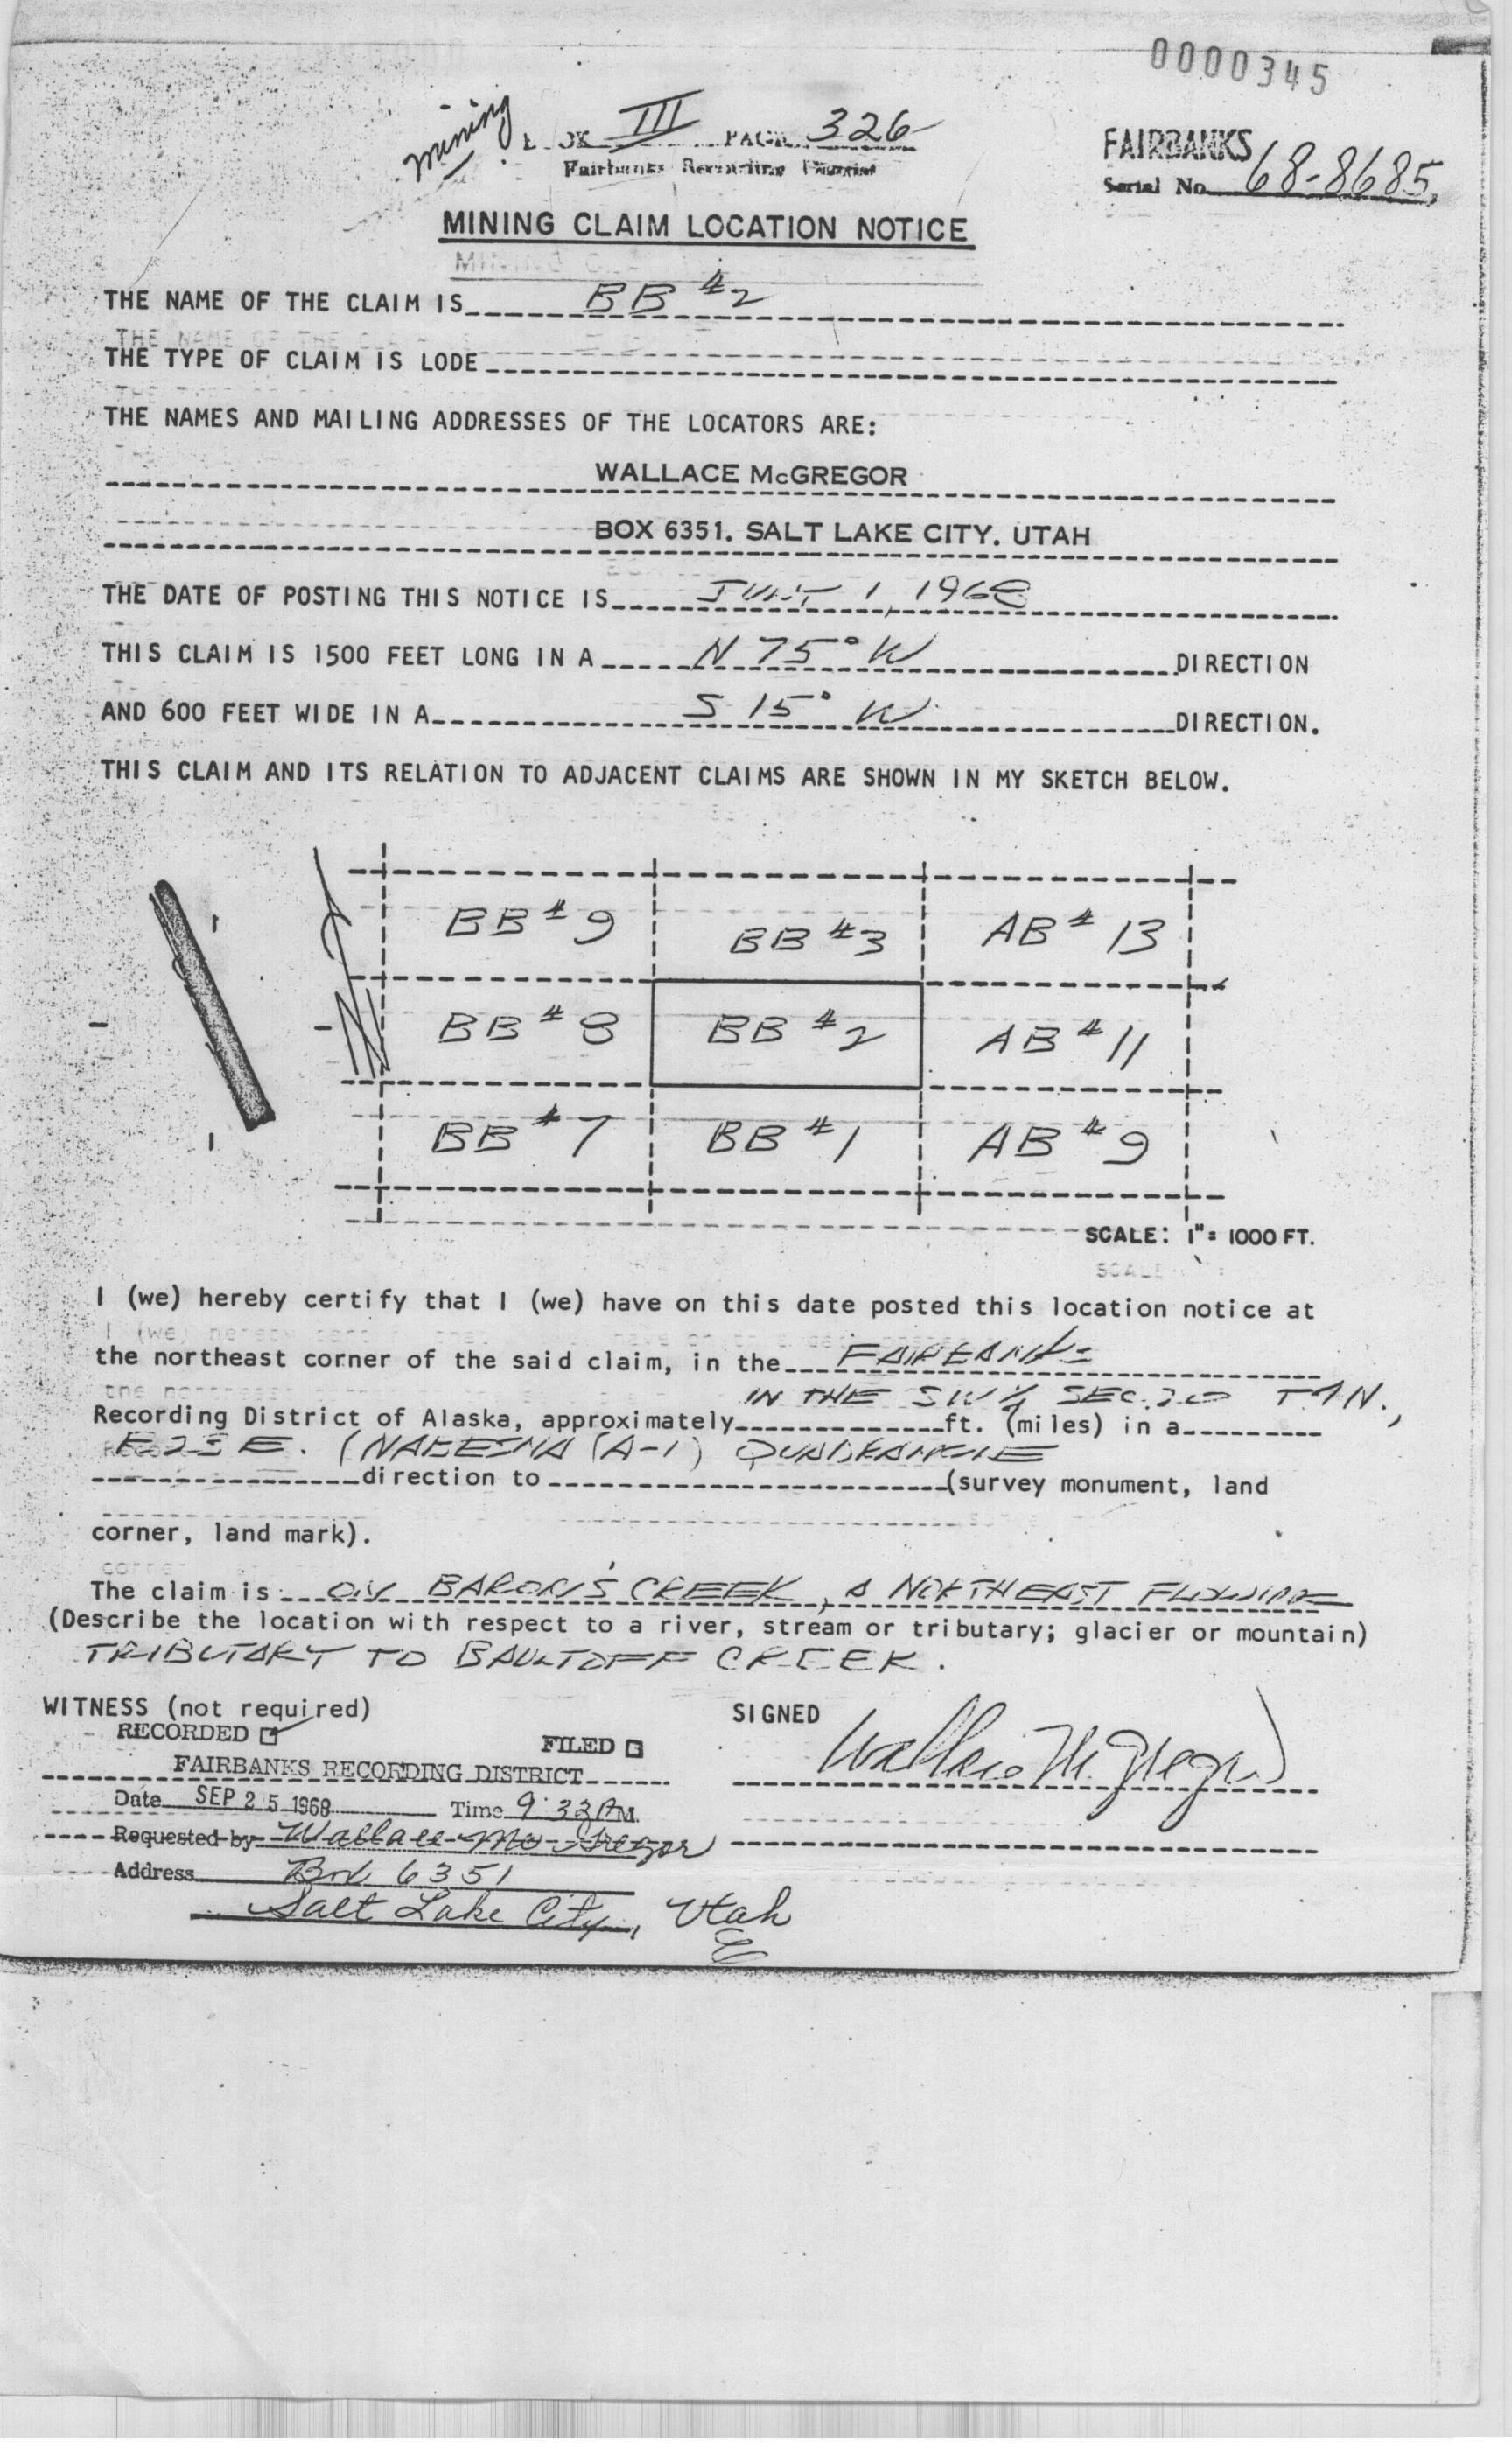 0000345
Mining BOOK III PAGE 326
Fairbanks Recording District
FAIRBANKS
Serial No. 68-8685
MINING CLAIM LOCATION NOTICE
THE NAME OF THE CLAIM IS BB #2
THE TYPE OF CLAIM IS LODE
THE NAMES AND MAILING ADDRESSES OF THE LOCATORS ARE:
WALLACE McGREGOR
BOX 6351. SALT LAKE CITY. UTAH
THE DATE OF POSTING THIS NOTICE IS 1, 1968
THIS CLAIM IS 1500 FEET LONG IN A N 75° W DIRECTION
AND 600 FEET WIDE IN A S 15° W DIRECTION.
THIS CLAIM AND ITS RELATION TO ADJACENT CLAIMS ARE SHOWN IN MY SKETCH BELOW.
N
BB #9 BB #3 AB #13
BB #8 BB #2 AB #11
BB #7 BB #1 AB #9
SCALE: 1"= 1000 FT.
I (we) hereby certify that I (we) have on this date posted this location notice at
the northeast corner of the said claim, in the FAIRBANKS
IN THE SW 1/4 SEC. T N.,
Recording District of Alaska, approximately ft. (miles) in a
E. (NABESNA (A-1) QUADRANGLE
direction to (survey monument, land
corner, land mark).
The claim is ON BARON'S CREEK, A NORTHEAST FLOWING
(Describe the location with respect to a river, stream or tributary; glacier or mountain)
TRIBUTARY TO BAULTOFF CREEK.
WITNESS (not required) SIGNED
RECORDED FILED
Wallace McGregor
FAIRBANKS RECORDING DISTRICT
Date SEP 25 1968 Time 9:33 AM.
Requested by Wallace McGregor
Address Box 6351
Salt Lake City, Utah